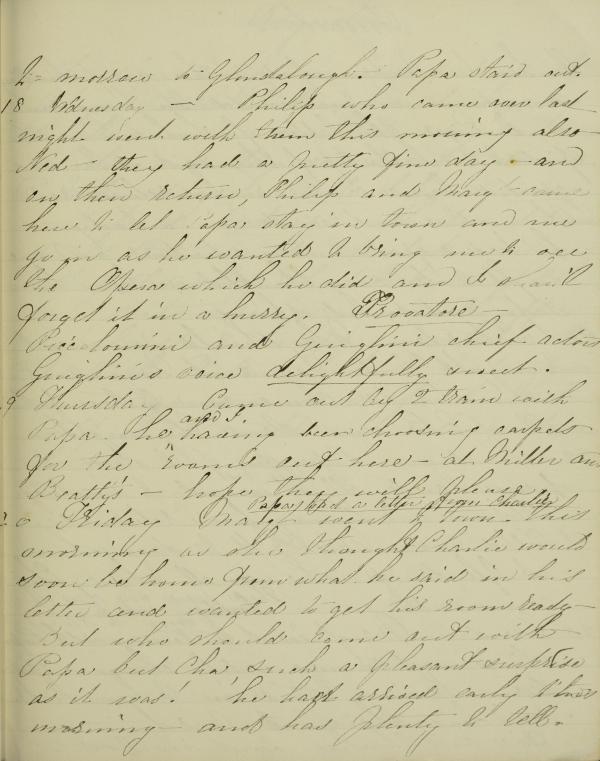 to = morrow to Glendalough. Papa staid out.
18 Wednesday — Philip who came over last
night went with them this morning also
Ned — they had a pretty fine day — and
on their return, Philip and Mary came
here to let Papa stay in town and me
go in as he wanted to bring me to see
the Opera which he did and I shan't
forget it in a hurry. Trovatore —
Piccolomini and Giuglini chief actors
Giuglini's voice delightfully sweet.
Thursday Came out by 2 train with
and I
Papa — he having been choosing carpets
for the rooms out here — at Miller and
Beatty's — hope they will please.
Papa had a letter from Charlie
20 Friday Mary went to town this
morning as she thought Charlie would
soon be home from what he said in his
letter and wanted to get his room ready —
But who should come out with
Papa but Cha' such a pleasant surprise
as it was! he had arrived early this
morning — and has plenty to tell.